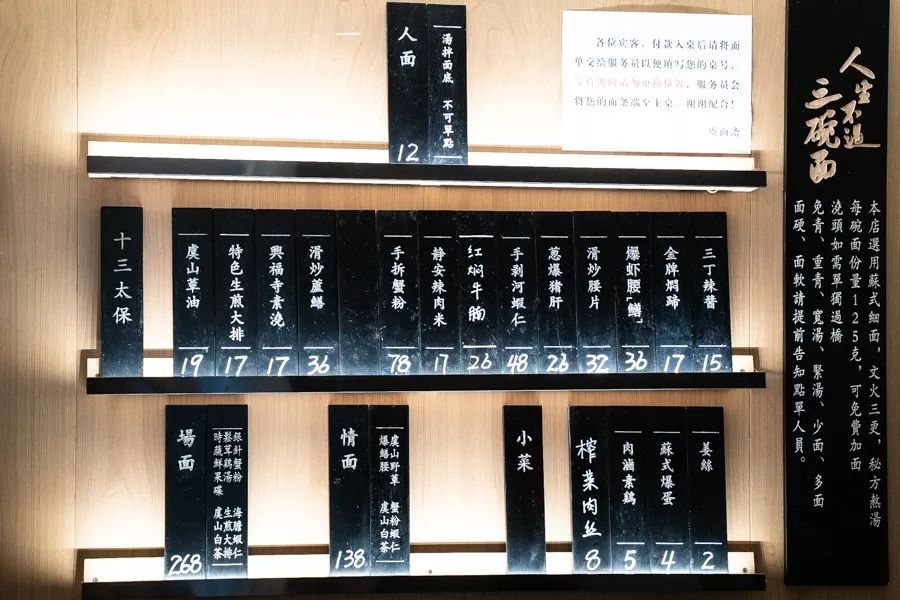 人面
湯拌面底 不可單點
12
各位宾客，付款入桌后请将面
单交给服务员以便填写您的桌号，
等待期间请勿更换位置，服务员会
将您的面条端至上桌，谢谢配合！
十三太保
虞山草油
19
特色生煎大排
17
興福寺素澆
17
滑炒蘆鱔
36
手拆蟹粉
78
静安辣肉米
17
红焖牛腩
26
手剥河蝦仁
48
葱爆猪肝
26
滑炒腰片
32
爆虾腰鱔
36
金牌燜蹄
17
三丁辣醬
15
場面
268
銀針蟹粉 海膽蝦仁
鬆茸鷄湯 生煎大排
時蔬鮮果碟 虞山白茶
情面
138
虞山野草 蟹粉蝦仁
爆鱔腰 虞山白茶
小菜
榨菜肉丝
8
肉滷素鷄
5
蘇式爆蛋
4
姜絲
2
人生不過
三碗面
本店選用蘇式細面，文火三更，秘方熬湯
每碗面份量125克，可免費加面
澆頭如需單獨過橋
免青、重青、寬湯、緊湯、少面、多面
面硬、面軟請提前告知點單人員。